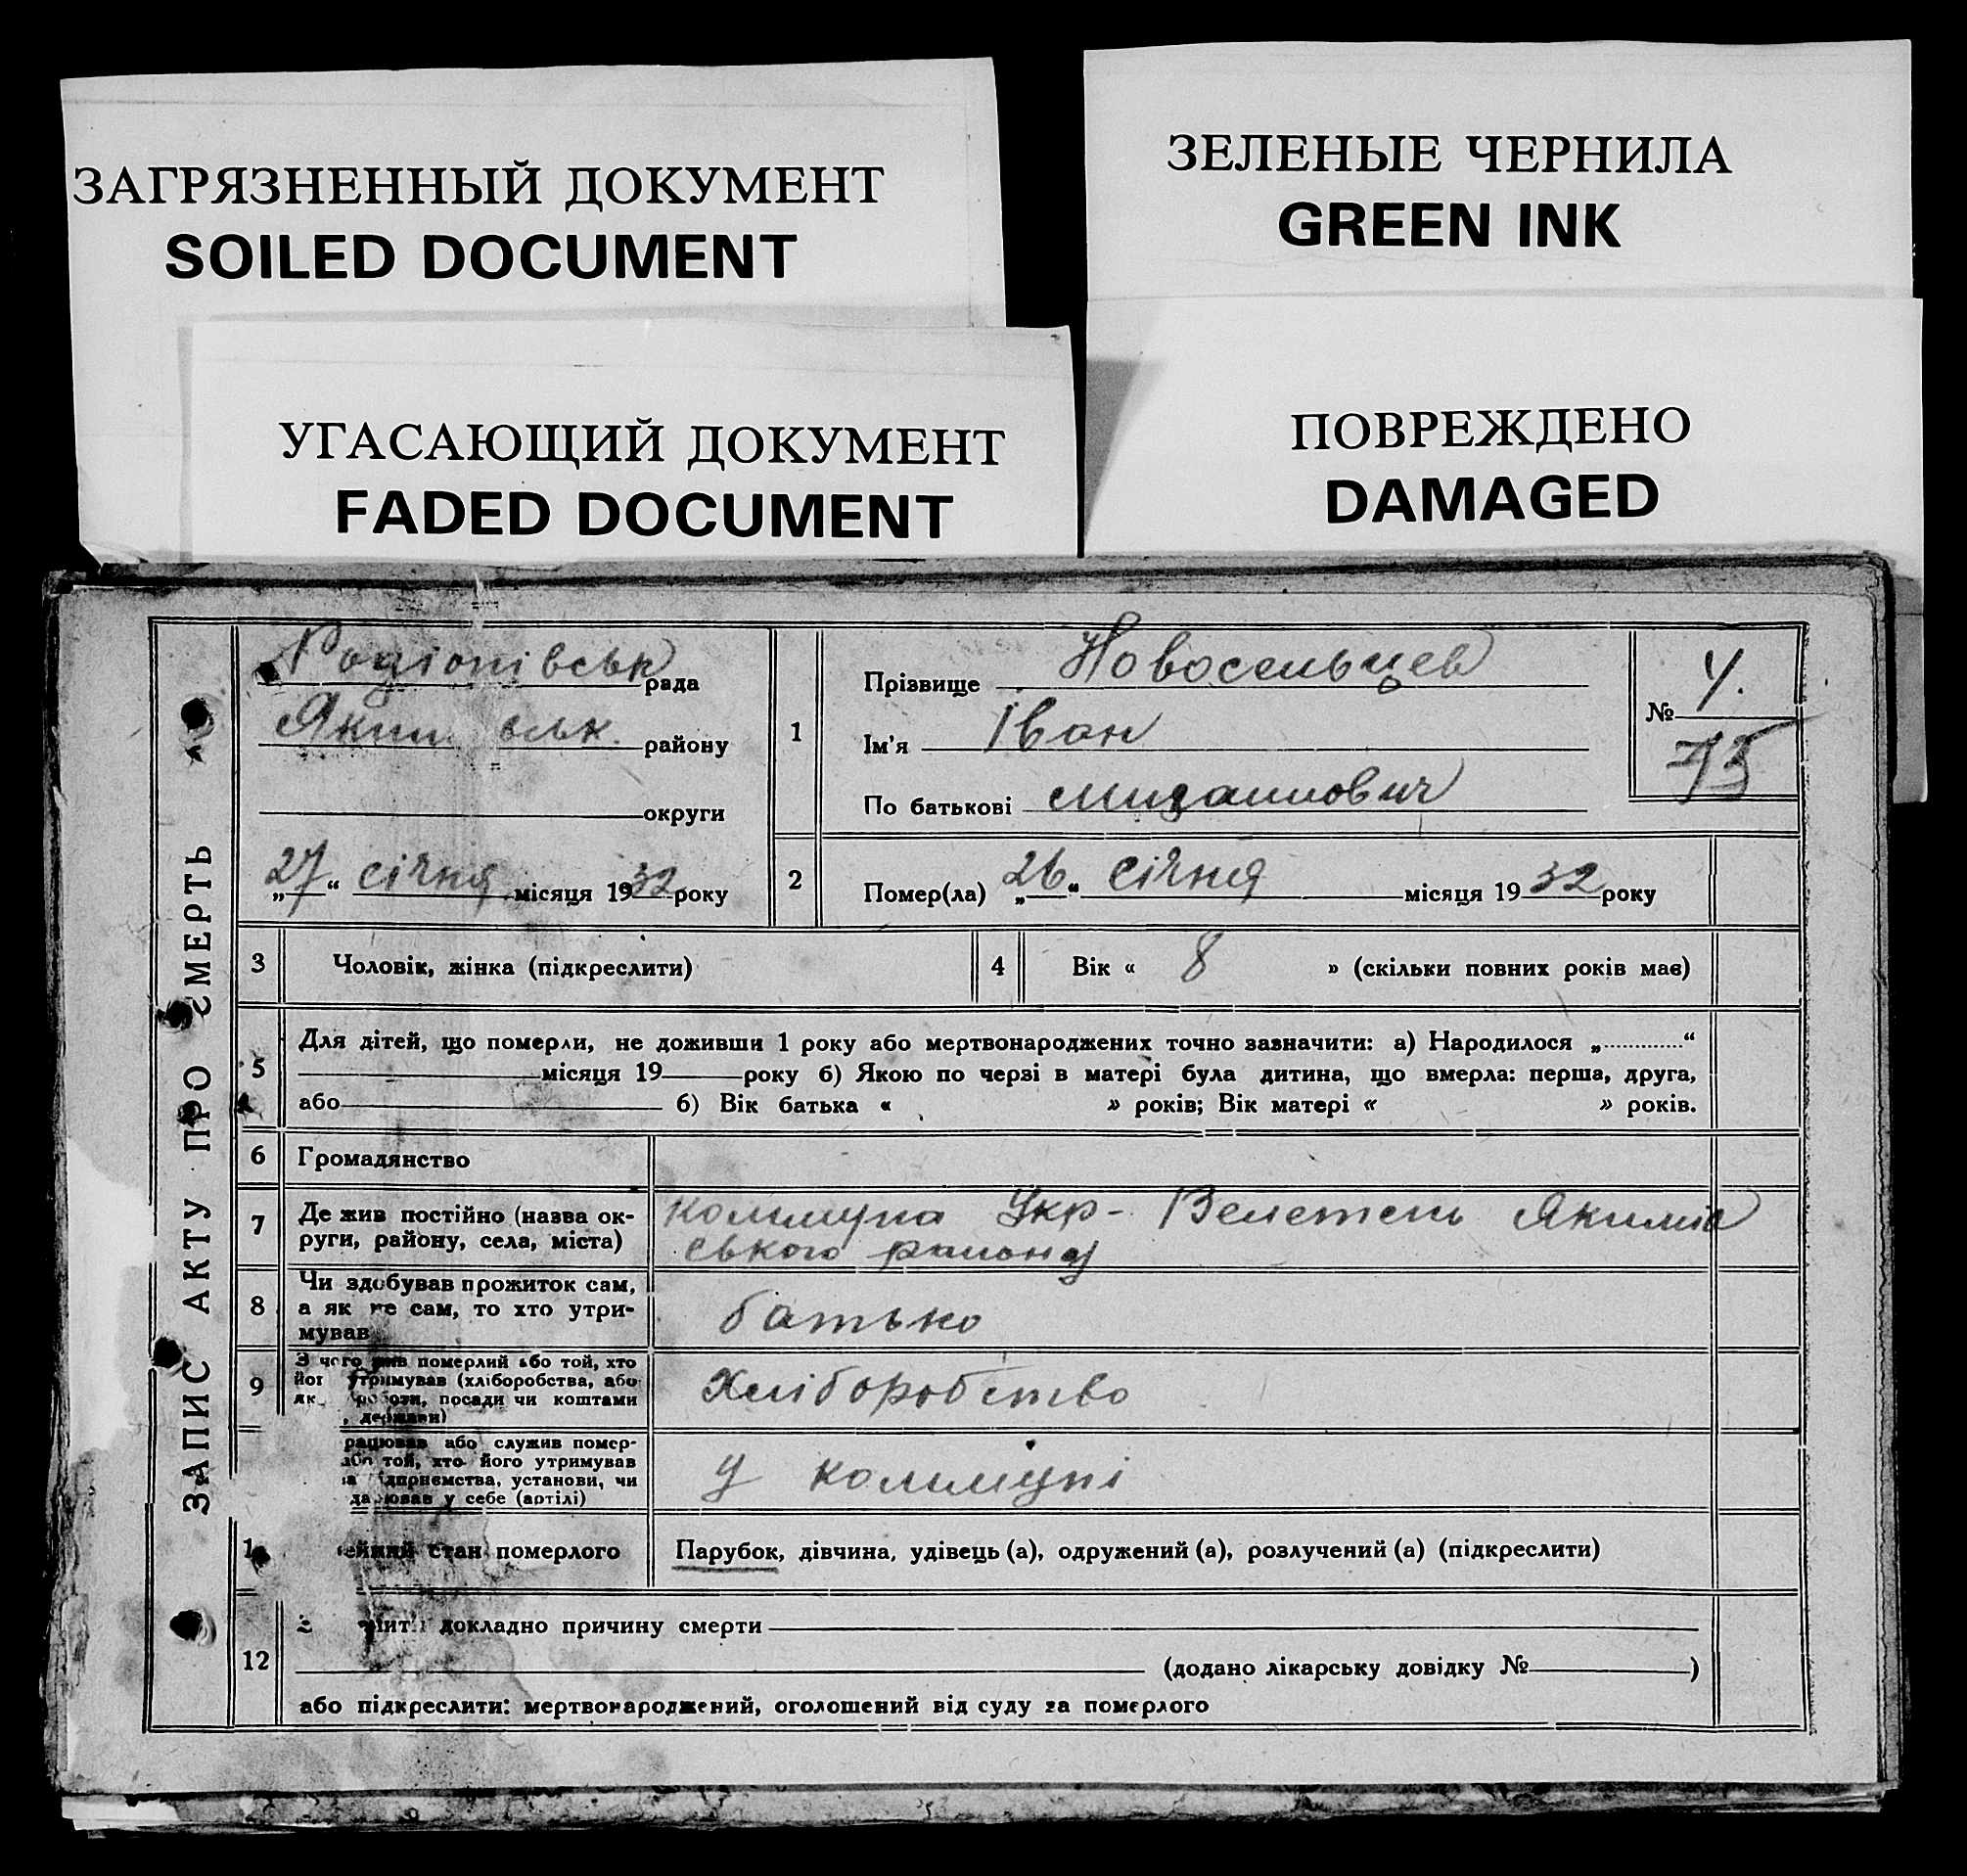 ЗАГРЯЗНЕННЫЙ ДОКУМЕНТ
SOILED DOCUMENT
ЗЕЛЕНЫЕ ЧЕРНИЛА
GREEN INK
УГАСАЮЩИЙ ДОКУМЕНТ
FADED DOCUMENT
ПОВРЕЖДЕНО
DAMAGED
ЗАПИС АКТУ ПРО СМЕРТЬ
Родіонівськ рада
району
округи
„27“ січня місяця 1932 року
1
Прізвище Новосельцев
Ім'я Іван
По батькові
№ 4.
2
Помер(ла) „26“ січня місяця 1932 року
3
Чоловік, жінка (підкреслити)
4
Вік « 8 » (скільки повних років має)
5
Для дітей, що померли, не доживши 1 року або мертвонароджених точно зазначити: а) Народилося „............“
місяця 19 року б) Якою по черзі в матері була дитина, що вмерла: перша, друга,
або б) Вік батька « » років; Вік матері « » років.
6
Громадянство
7
Де жив постійно (назва ок-
руги, району, села, міста)
коммуна Укр- Велетень Якимів
ського району
8
Чи здобував прожиток сам,
а як не сам, то хто утри-
мував
батько
9
З чого жив померлий або той, хто
його утримував (хліборобства, або
посади чи коштами
держави)
Хліборобство
працював або служив помер-
або той, хто його утримував
установи, чи
у себе (артілі)
у коммуні
1
стан померлого
Парубок, дівчина, удівець (а), одружений (а), розлучений (а) (підкреслити)
12
докладно причину смерти
(додано лікарську довідку № )
або підкреслити: мертвонароджений, оголошений від суду за померлого